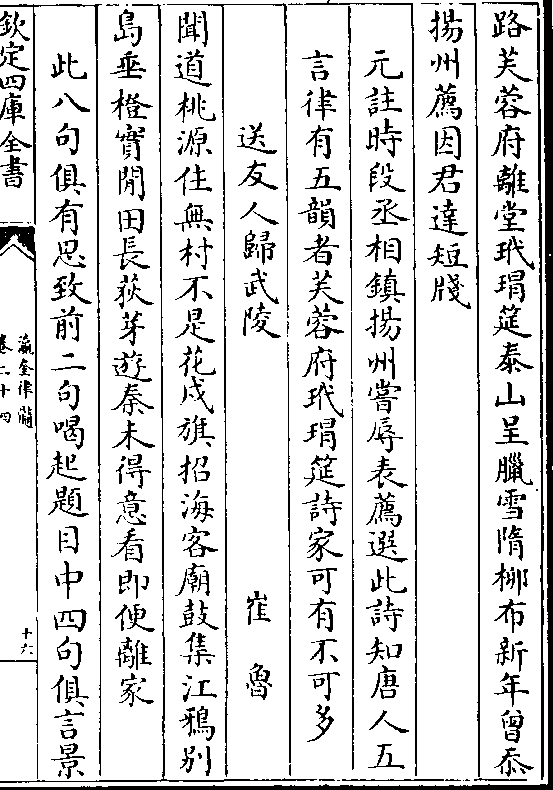 路芙蓉府離堂玳瑁筵泰山呈臘雪隋栁布新年曾忝
揚州薦因君達短牋
元註時段丞相鎮揚州嘗辱表薦選此詩知唐人五
言律有五韻者芙蓉府玳瑁筵詩家可有不可多
送友人歸武陵　崔魯
聞道桃源住無村不是花戍旗招海客廟鼓集江鴉别
島垂橙實閒田長荻芽遊秦未得意看即便離家
此八句俱有思致前二句喝起題目中四句俱言景
欽定四庫全書
瀛奎律髓
卷二十四
十六